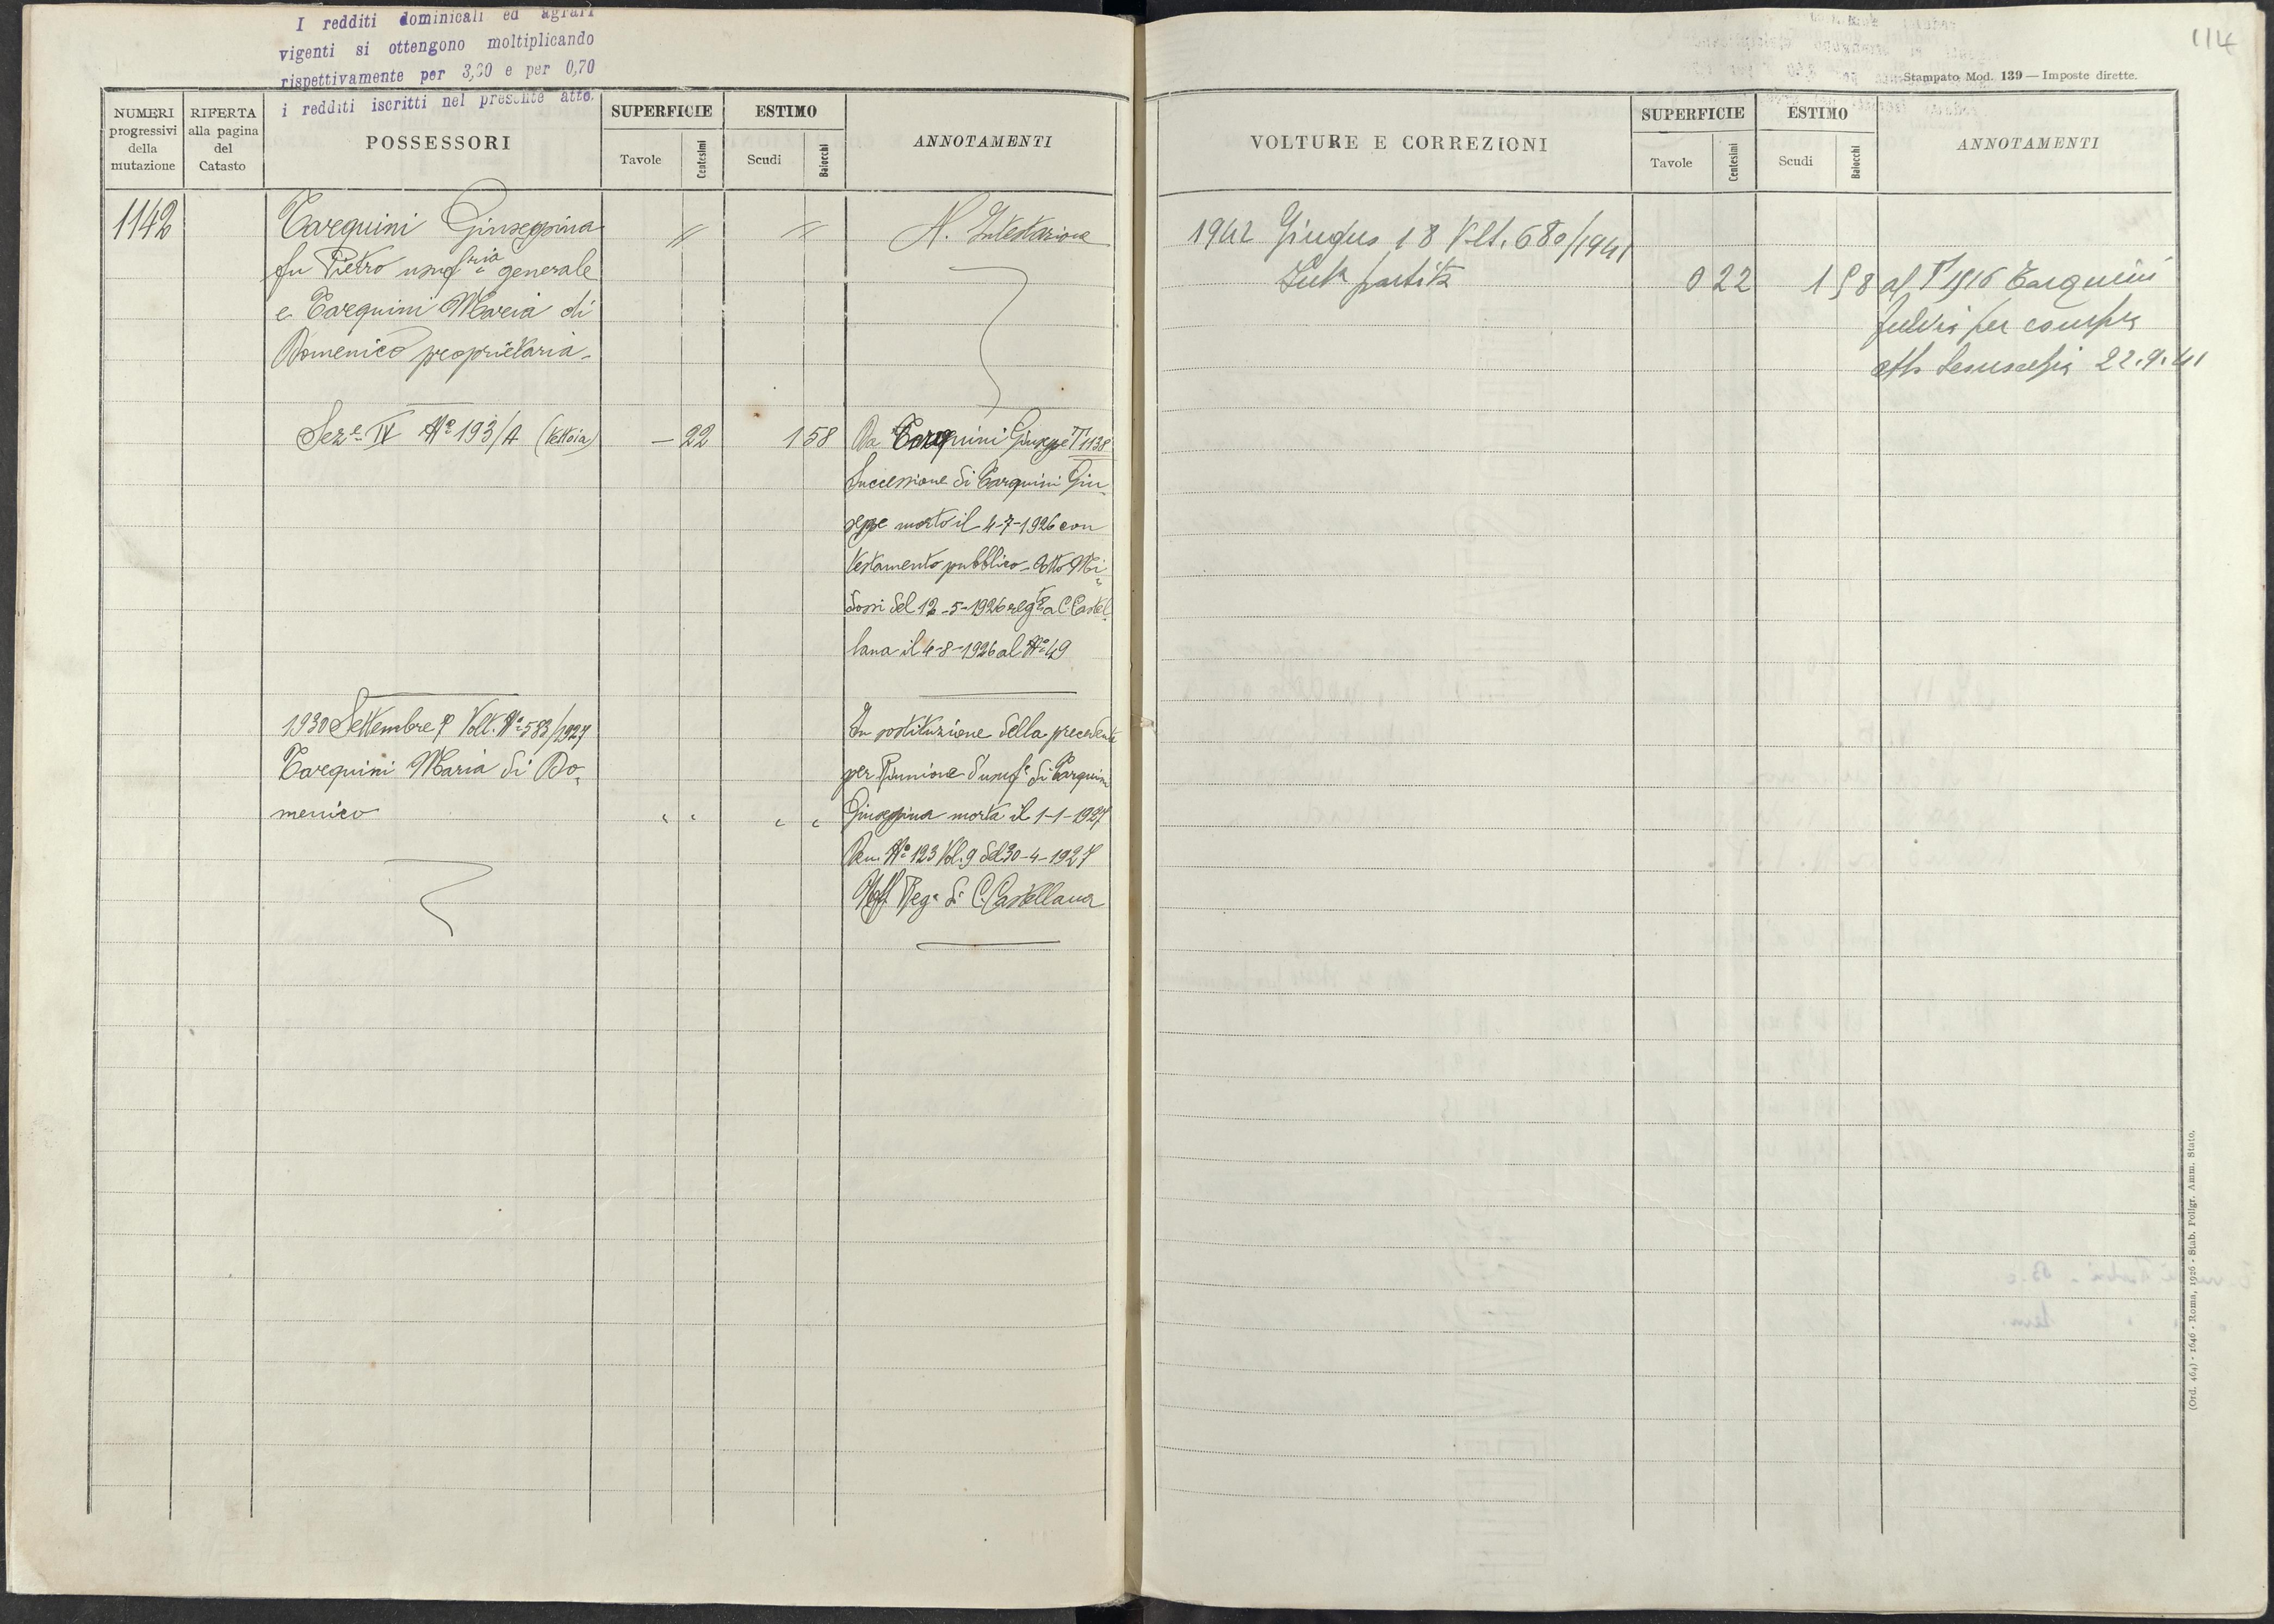 I redditi dominicali ed agrari
vigenti si ottengono moltiplicando
rispettivamente per 3,30 e per 0,70
i redditi iscritti nel presente atto.
NUMERI progressivi della mutazione
RIFERTA alla pagina del Catasto
POSSESSORI
SUPERFICIE
Tavole
Centesimi
ESTIMO
Scudi
Baiocchi
ANNOTAMENTI
1142
Tarquini Giuseppina
fu Pietro usuf.ria generale
e Tarquini Maria di
Domenico proprietaria.
N. Intestazione
Sez.e IV Nº 193/A (Tettoia)
- 22
1 58
Da Tarquini Giuseppe T 1138
Successione di Tarquini Giu-
seppe morto il 4-7-1926 con
testamento pubblico - Atto Mi-
dossi del 12-5-1926 reg.to a C. Castel-
lana il 4-8-1926 al Nº 49
1930 Settembre 9 Volt. Nº 583/1927
Tarquini Maria di Do-
menico
" "
" "
In sostituzione della precedente
per Riunione d'usuf.º di Tarquini
Giuseppina morta il 1-1-1927
Den. Nº 123 Vol. 9 del 30-4-1927
Uff. Reg.º di C. Castellana
114
Stampato Mod. 139 — Imposte dirette.
VOLTURE E CORREZIONI
SUPERFICIE
Tavole
Centesimi
ESTIMO
Scudi
Baiocchi
ANNOTAMENTI
1942 Giugno 18 Vlt. 680/1941
partita
0 22
1 58
al T 1916 Tarquini
Fulvia per compra
atto 22.9.41
(Ord. 464) - 1646 - Roma, 1926 - Stab. Poligr. Amm. Stato.